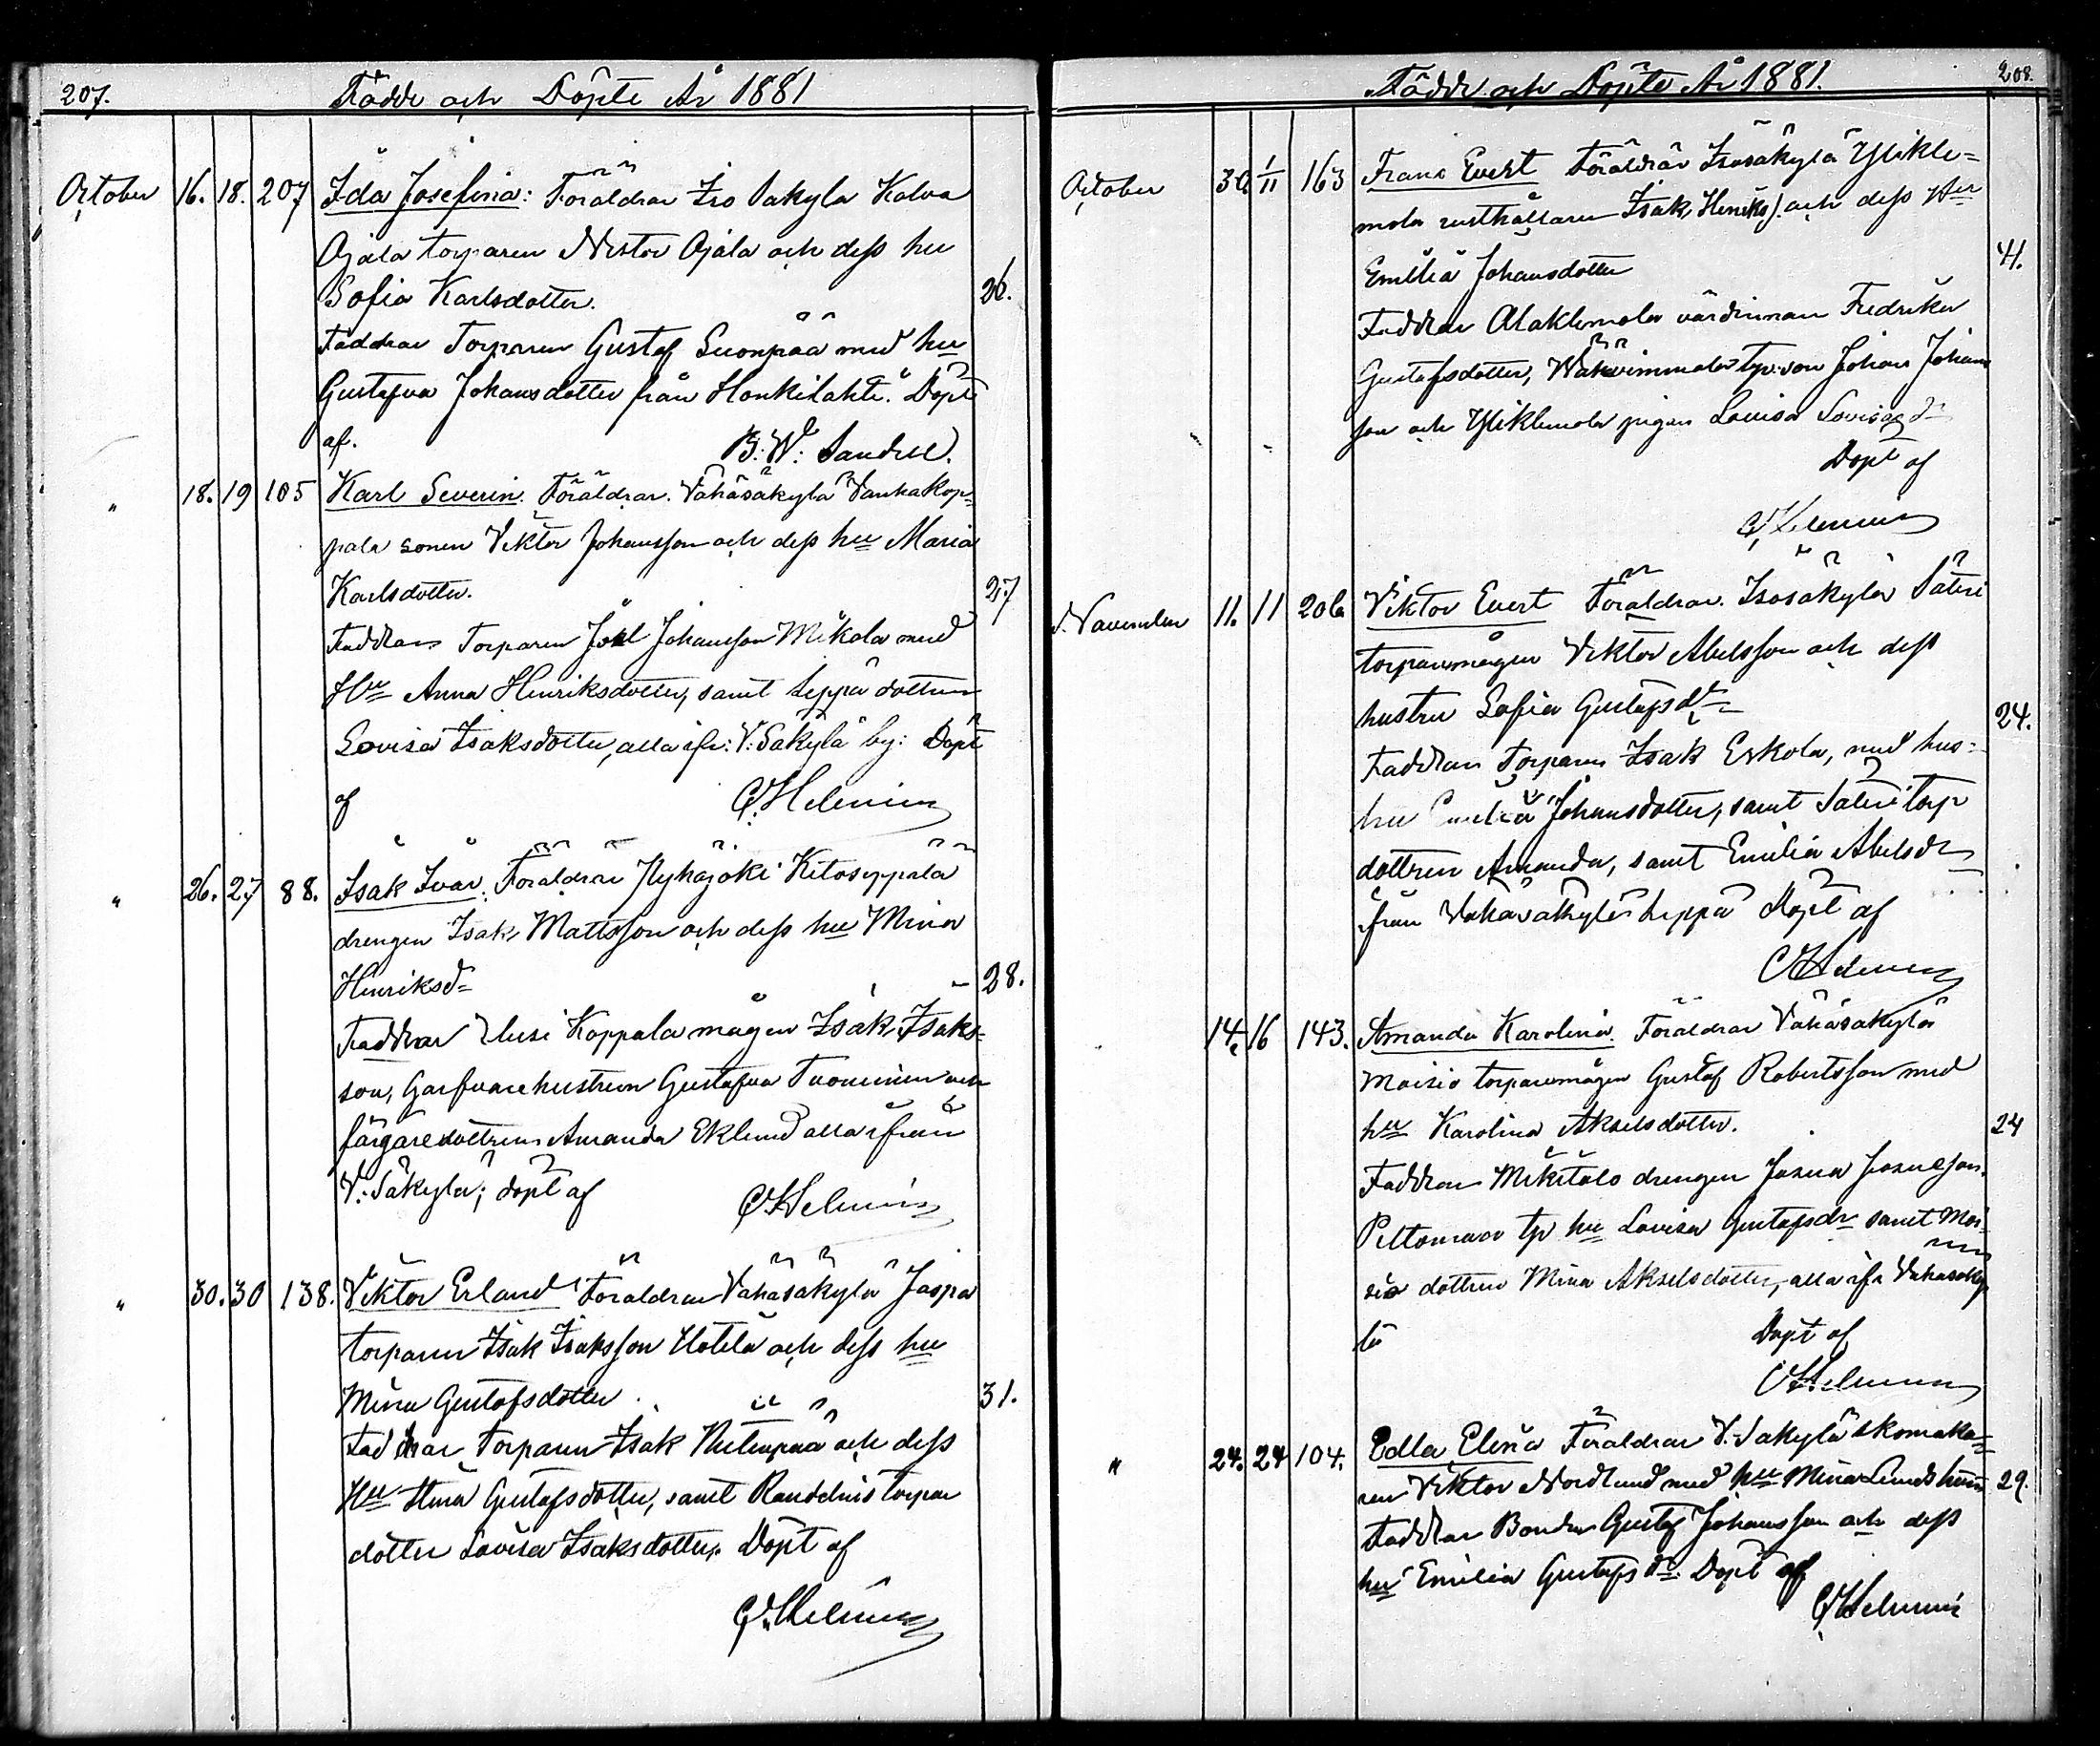 207. Födde och Döpte År 1881
October 16. 18. 207 Ida Josefina: Föräldrar Iso Säkylä Kalva
Ojala torparen Nestor Ojala och dess hu
Sofia Karlsdotter. 26.
Faddrar Torparen Gustaf Suonpää med hu
Gustafva Johansdotter från Honkilahti. Döpt
af. B: W: Sandell.
" 18. 19 105 Karl Severin. Föräldrar. Vähäsäkylä Vanhakop-
pala sonen Viktor Johansson och dess hu Maria
Karlsdotter. 27
Faddrar Torparen Joel Johansson Mikola med
Hu Anna Henriksdotter, samt Seppä dottren
Lovisa Isaksdotter, alla ifr: V: Säkylä by: Döpt
af C. Helenius
" 26. 27 88. Isak Ivar. Föräldrar Pyhäjoki
drengen Isak Mattsson och dess hu Mina
Henriksd= 28.
Faddrar Uusi Koppala mågen Isak Isaks-
son, Garfvarehustrun Gustafva Tuominen och
färgaredottren Amanda Eklund alla ifrån
V: Säkylä; döpt af C Helenius
" 30. 30 138. Viktor Erland Föräldrar Vähäsäkylä Jaspa
torparen Isak Isaksson Uotila och dess hu
Mina Gustafsdotter. 31.
Faddrar Torparen Isak och dess
Hu Stina Gustafsdotter, samt torpar
dotter Lovisa Isaksdotter. Döpt af
C. Helenius
Födde och Döpte År 1881. 208.
October 30 1/11 163 Frans Evert Föräldrar Isosäkylä Ylikle=
mola rusthållaren Isak Henriks). och dess Hu
Emilia Johansdotter 41.
Faddrar Alaklemola värdinnan Fredrika
Gustafsdotter, tp: son Johan Johans
son och Yliklemola pigan Lovisa
Döpt af
C Helenius
November 11. 11 206 Viktor Evert Föräldrar. Isosäkylä Säteri
torparemågen Viktor Abelsson och dess
hustru Sofia Gustafsdr 24.
Faddrar Torparen Isak Eskola, med hus-
tru Emilia Johansdotter, samt Säteri torp
dottren Amanda, samt Emilia Abelsdr
från Vähäsäkylä Seppä Döpt af
C Helenius
14. 16 143. Amanda Karolina. Föräldrar Vähäsäkylä
Moisio torparemågen Gustaf Robertsson med
hu Karolina Akselsdotter. 24
Faddrar Mikitalo drengen Josua Josuason.
Peltomaa tp hu Lovisa Gustafsdr samt Moi-
sio dottren Mina Akselsdotter, alla ifr Vähäsäky
lä Döpt af
C Helenius
" 24. 24 104. Edla Elina Föräldrar V. Säkylä skomaka-
ren Viktor Nordlund med hu Mina 29.
Faddrar Bonden Gustaf Johansson och dess
hu Emilia Gustafsdr. Döpt af
C Helenius